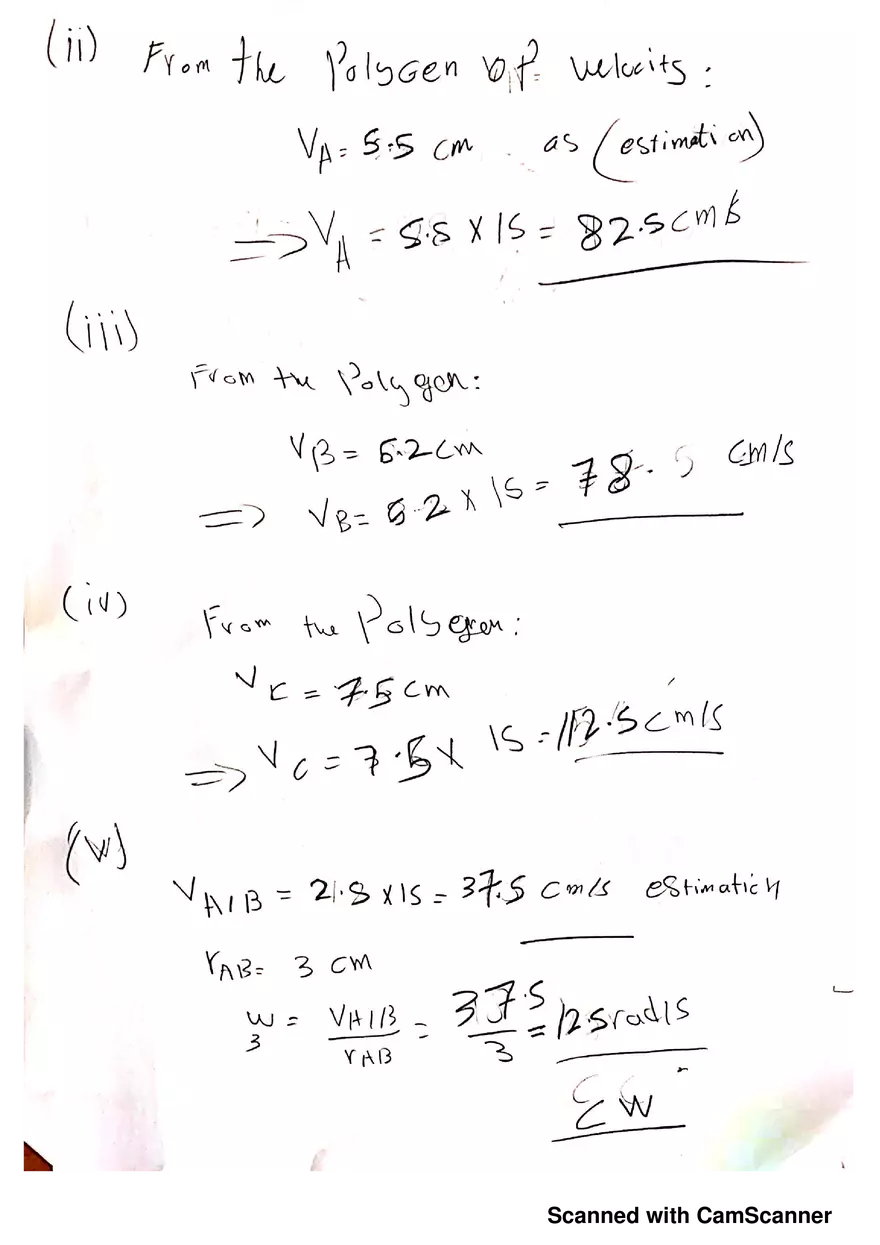 (ii) From the Polygen of velocits:
VA = 5.5 cm as (estimation)
⇒ VA = 5.5 X 15 = 82.5 cm/s
(iii)
From the Polygon:
VB = 5.2 cm
⇒ VB = 5.2 X 15 = 78. cm/s
(iv) From the Polygen:
VC = 7.5 cm
⇒ VC = 7.5 X 15 = 112.5 cm/s
(v)
VA/B = 2.5 X 15 = 37.5 cm/s estimation
rAB = 3 cm
w3 = VA/B / rAB = 37.5 / 3 = 12.5 rad/s
Scanned with CamScanner